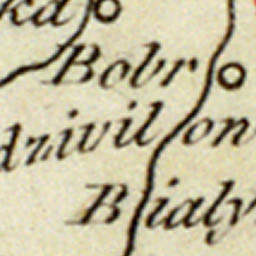 ka
Bobr
dzivilon
Bialy